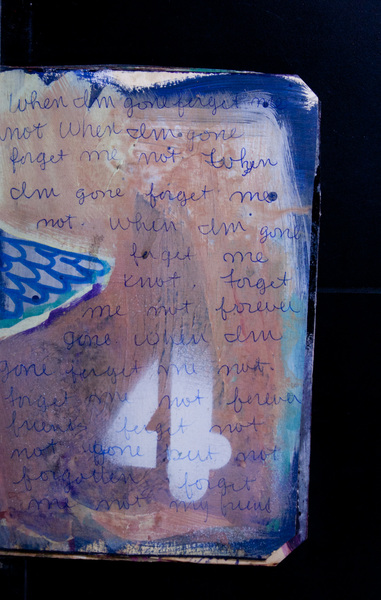 When Im gone forget me
not When Im gone
forget me not When
Im gone forget me
not. When Im gone
forget me
knot. Forget
me not forever
gone when Im
gone forget me not.
forget me not forever
friends forget not
not gone but not
forgotten forget
me not my friend
4